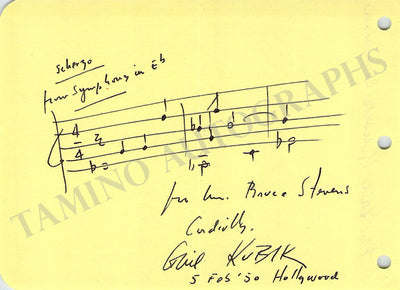 Scherzo
from Symphony in Eb
4
4
for Mr. Bruce Stevens
Cordially,
Gail KUBIK
5 Feb '50 Hollywood
TAMINO AUTOGRAPHS